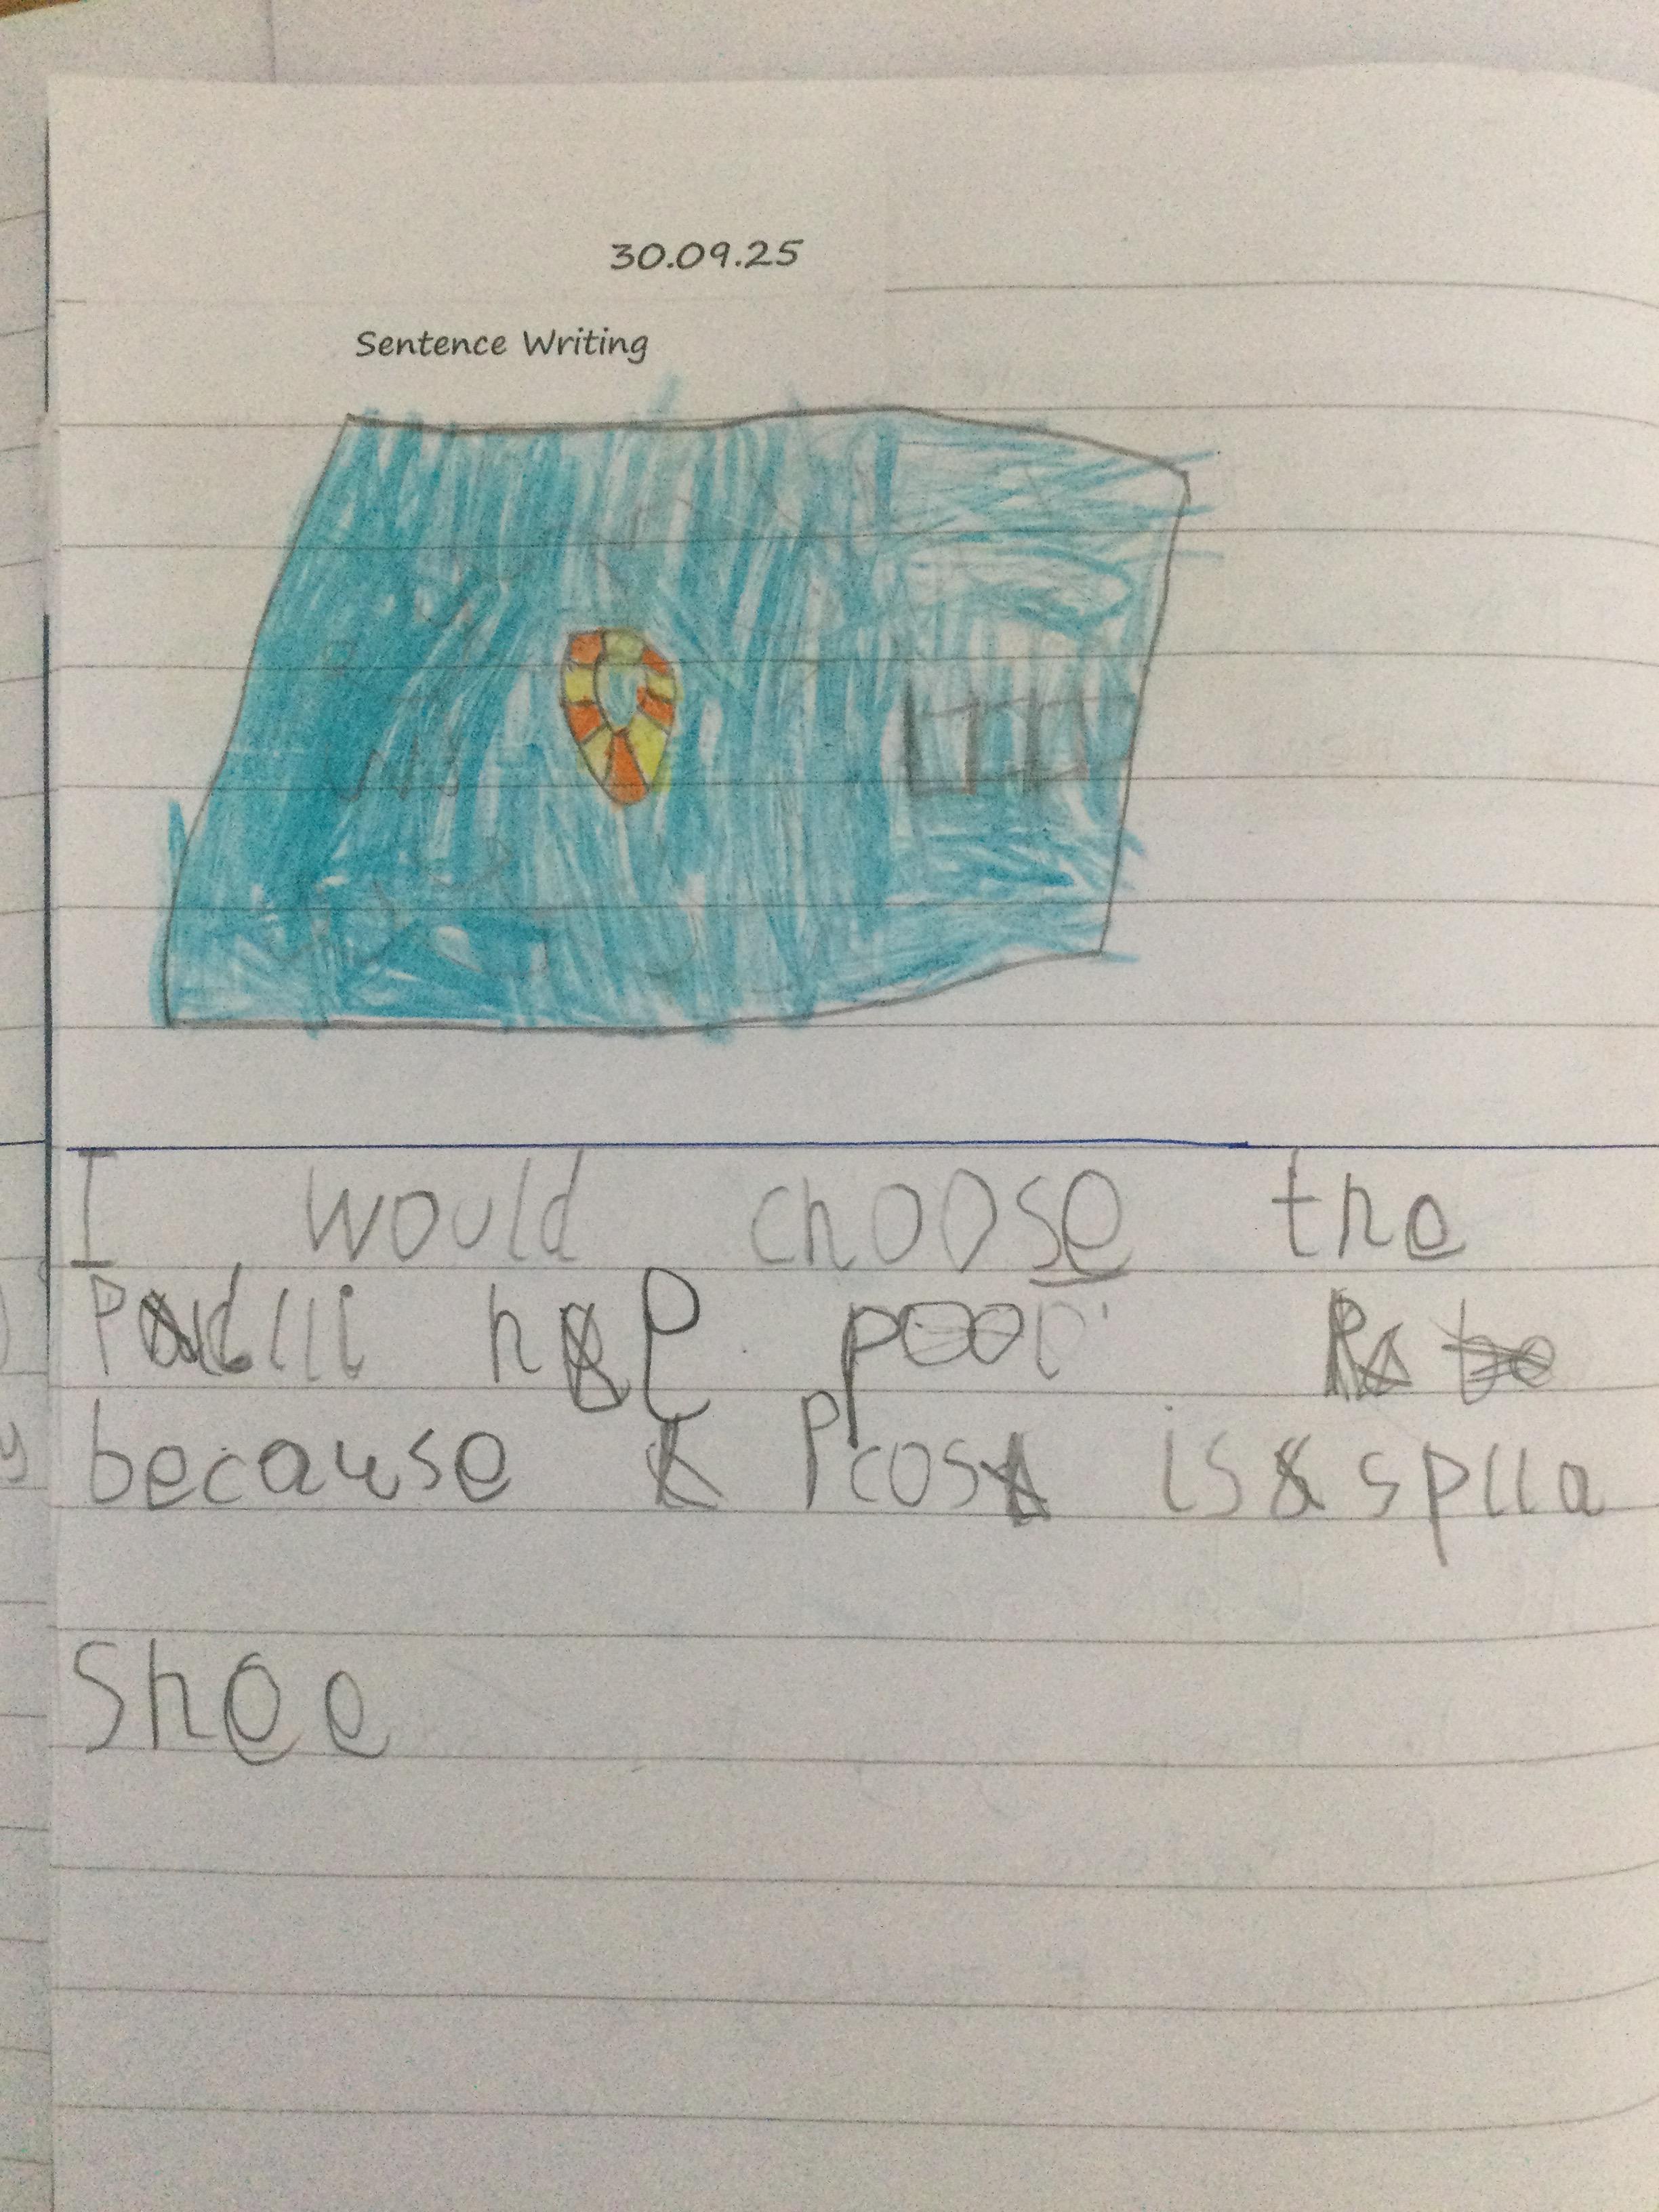 30.09.25
Sentence Writing
I would choose the
pool
because Pcos is splla
Shee